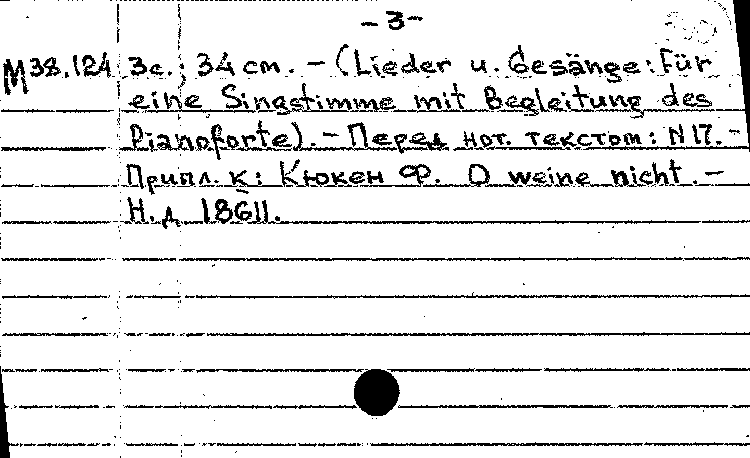 -3-
М38.124 3с.; 34 см. – (Lieder u. Gesänge: Für
eine Singstimme mit Begleitung des
Pianoforte). – Перед нот. текстом: N 17. –
Припл. к: Кюкен Ф. O weine nicht. –
Н.д. 18611.